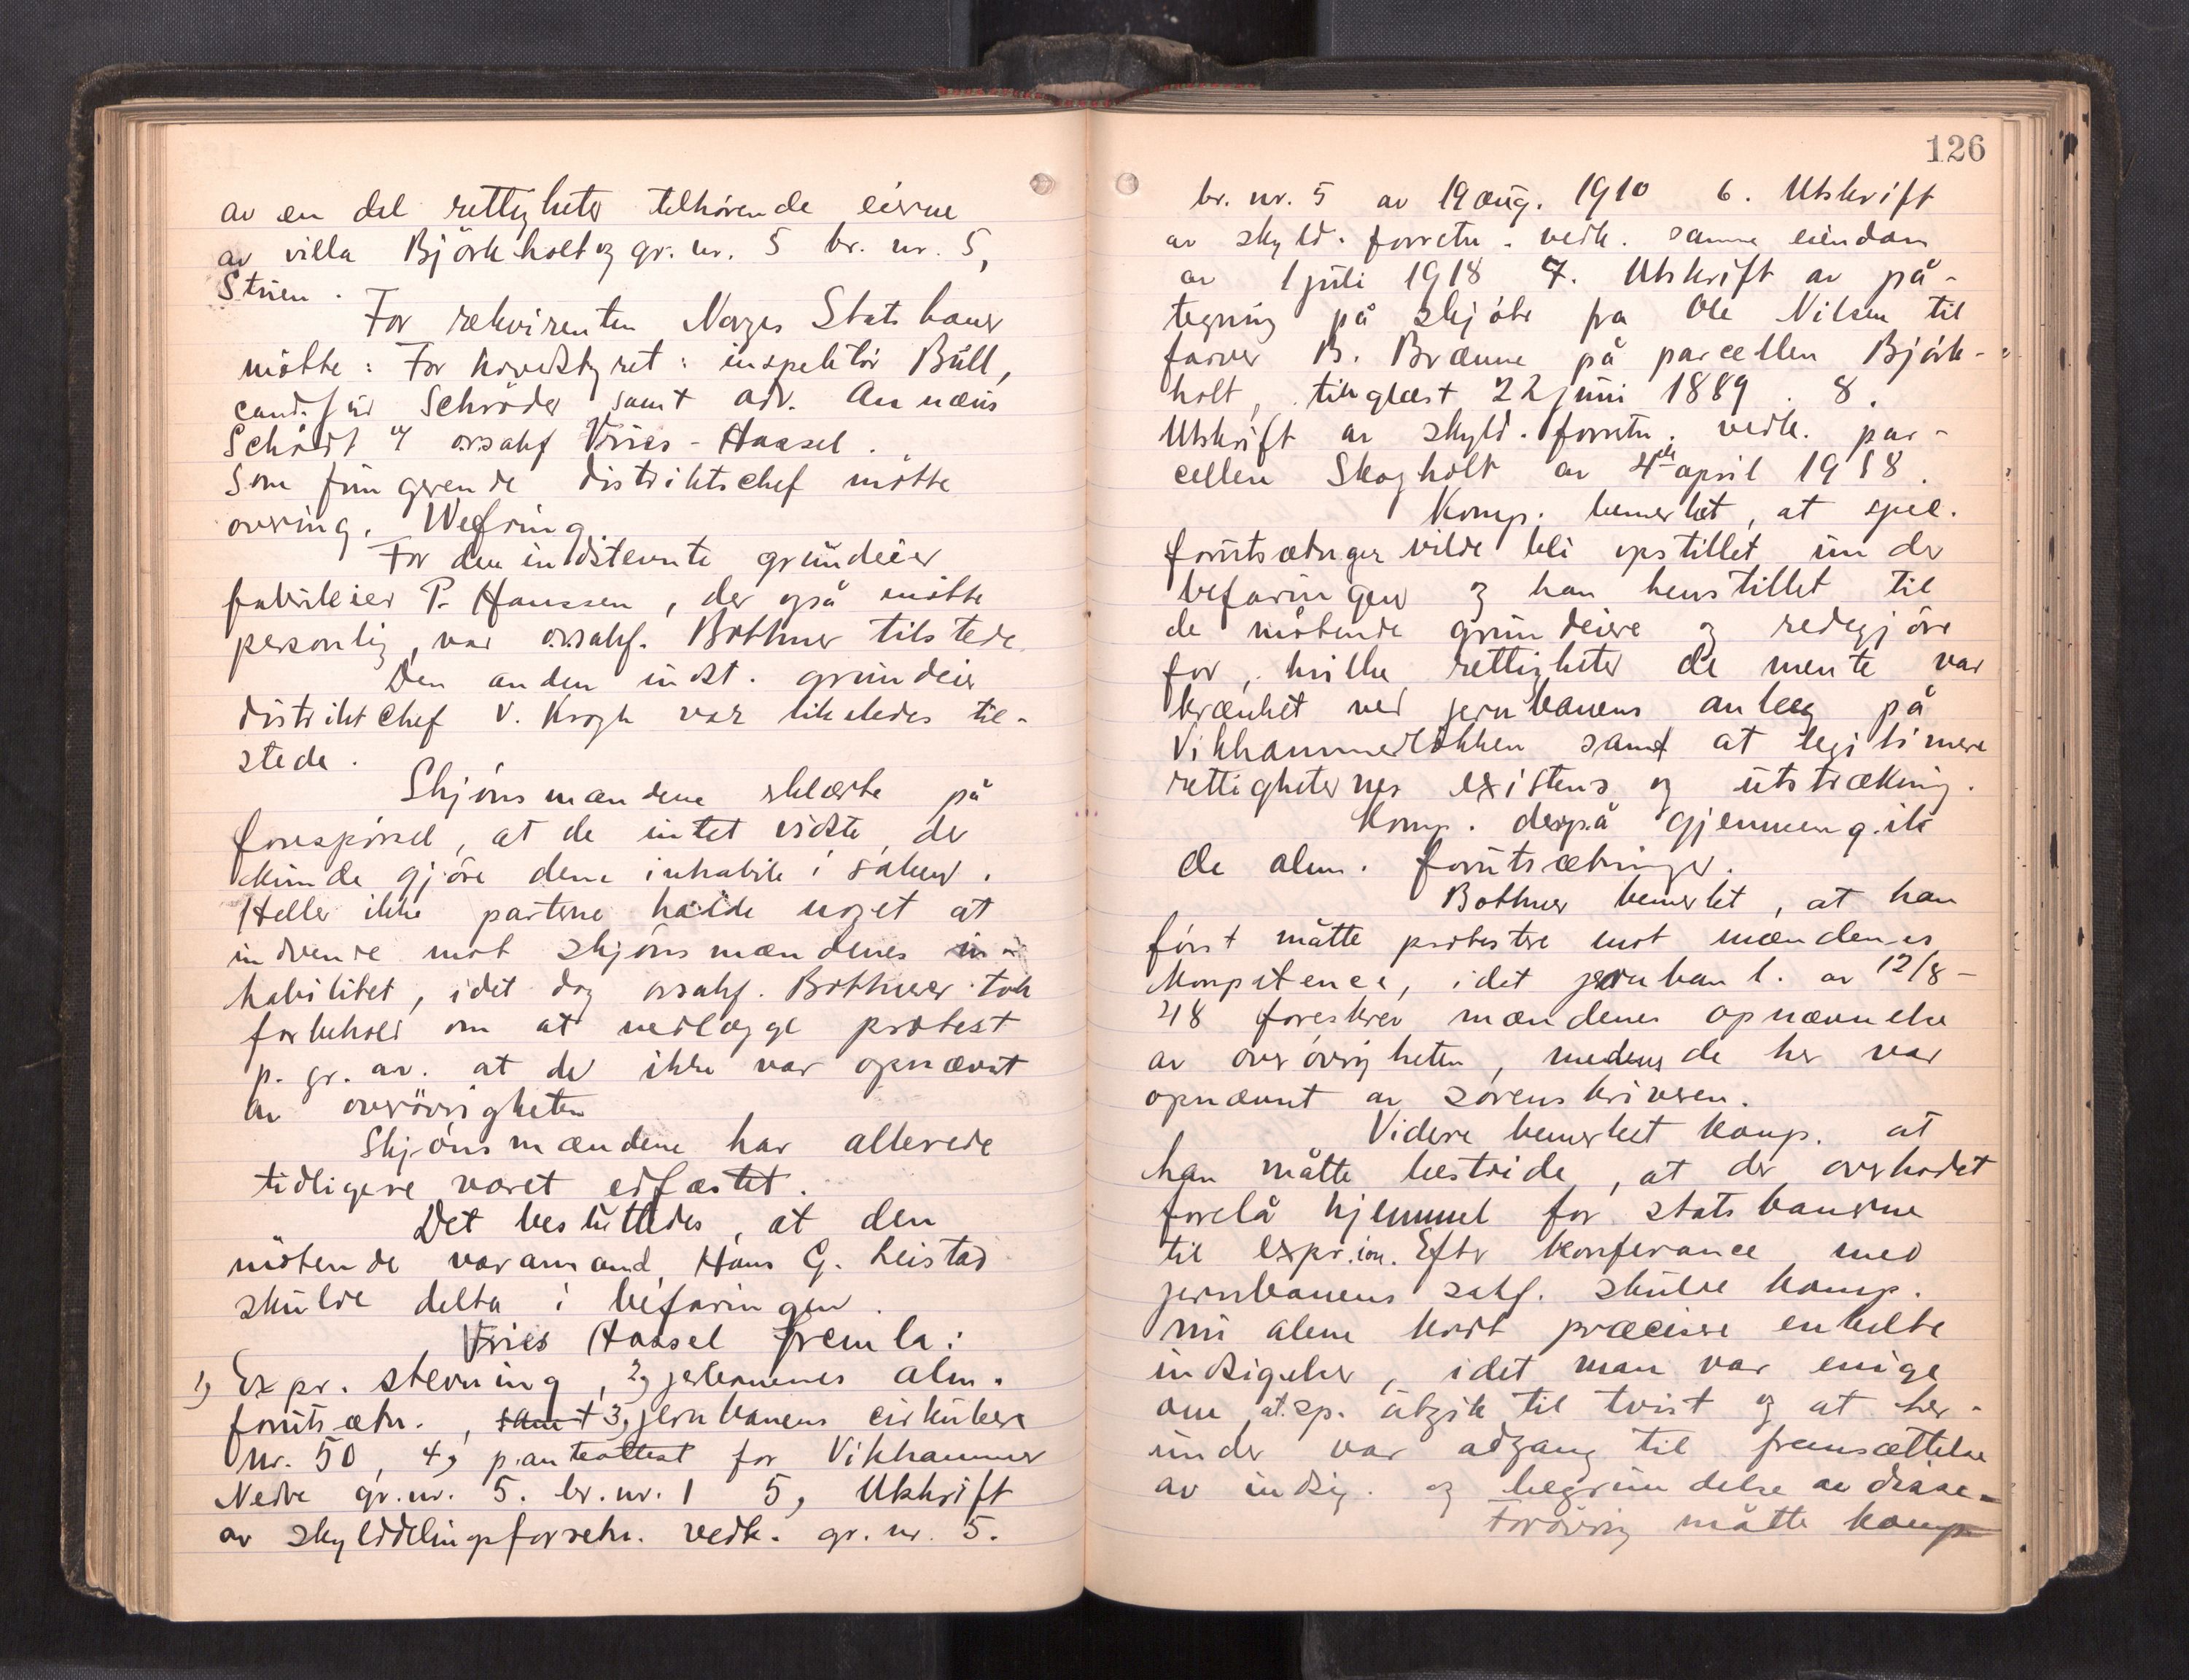 av en del rettigheter tilhørende eierne
av villa Björkholt og gr. nr. 5 br. nr. 5,
Stuen.
For rekvirenten Norges Statsbaner
møtte: For hovedstyret: inspektør Bull,
cand. jur Schrøder samt adv. Annæus
Schødt v/ orsakf Vries-Haasel.
Som fungerende distriktschef møtte
overing. Wefring
For den indstevnte grundeier
fabrikeier P. Hanssen, der også møtte
personlig, var orsakf. Bothner tilstede
Den anden indst. grundeier
distriktchef V. Krogh var likeledes til-
stede.
Skjønsmændene erklærte på
forespørsel, at de intet vidste, der
kunde gjøre dem inhabile i saken.
Heller ikke parterne hadde noget at
indvende mot skjønsmændenes
habilitet, idet dog orsakf. Bothner tok
forbehold om at nedlægge protest
p. gr. av. at de ikke var opnævnt
av overøvrigheten
Skjønsmændene har allerede
tidligere været edfæstet.
Det besluttedes, at den
møtende varamand Hans G. Leistad
skulde delta i befaringen.
Vries Haasel fremla:
1, Expr. stevning, 2, jerbanenes alm.
forutsætn., samt 3, jernbanens cirkulære
nr. 50, 4, panteattest for Vikhammer
Nedre gr. nr. 5. br. nr. 1 5, Utskrift
av skylddelingsforretn. vedk. gr. nr. 5.
126
br. nr. 5 av 19 aug. 1910 6. Utskrift
av skyld. forretn. vedk. samme eiendom
av 1 juli 1918 7. Utskrift av på-
tegning på skjøte fra Ole Nilsen til
farver B. Brænne på parcellen Björk-
holt, tinglæst 22 juni 1889. 8.
Utskrift av skyld. forretn. vedk. par-
cellen Skogholt av 4de april 1918.
Komp. bemerket, at spec.
forutsætnger vilde bli opstillet under
befaringen og han henstillet til
de møtende grundeiere og redegjøre
for, hvilke rettigheter de mente var
krænket ved jernbanens anlæg på
Vikhammerløkken samt at legitimere
rettigheternes existens og utstrækning.
Komp. derpå gjennemgik
de alm. forutsætninger.
Bothner bemerket, at han
først måtte protestere mot mændenes
kompetence, idet jernban l. av 12/8-
48 foreskrev mændenes opnævnelse
av overøvrigheten, medens de her var
opnævnt av sorenskriveren.
Videre bemerket komp. at
han måtte bestride, at der overhodet
forelå hjemmel for statsbanerne
til expr.ion. Efter konferance med
jernbanens sakf. skulde komp.
nu alene kort præcisere enkelte
indsigelser, idet man var enige
om at sp. utgik til tvist og at her-
under var adgang til fremsættelse
av indsig. og begrundelse av disse-
Forøvrig måtte komp